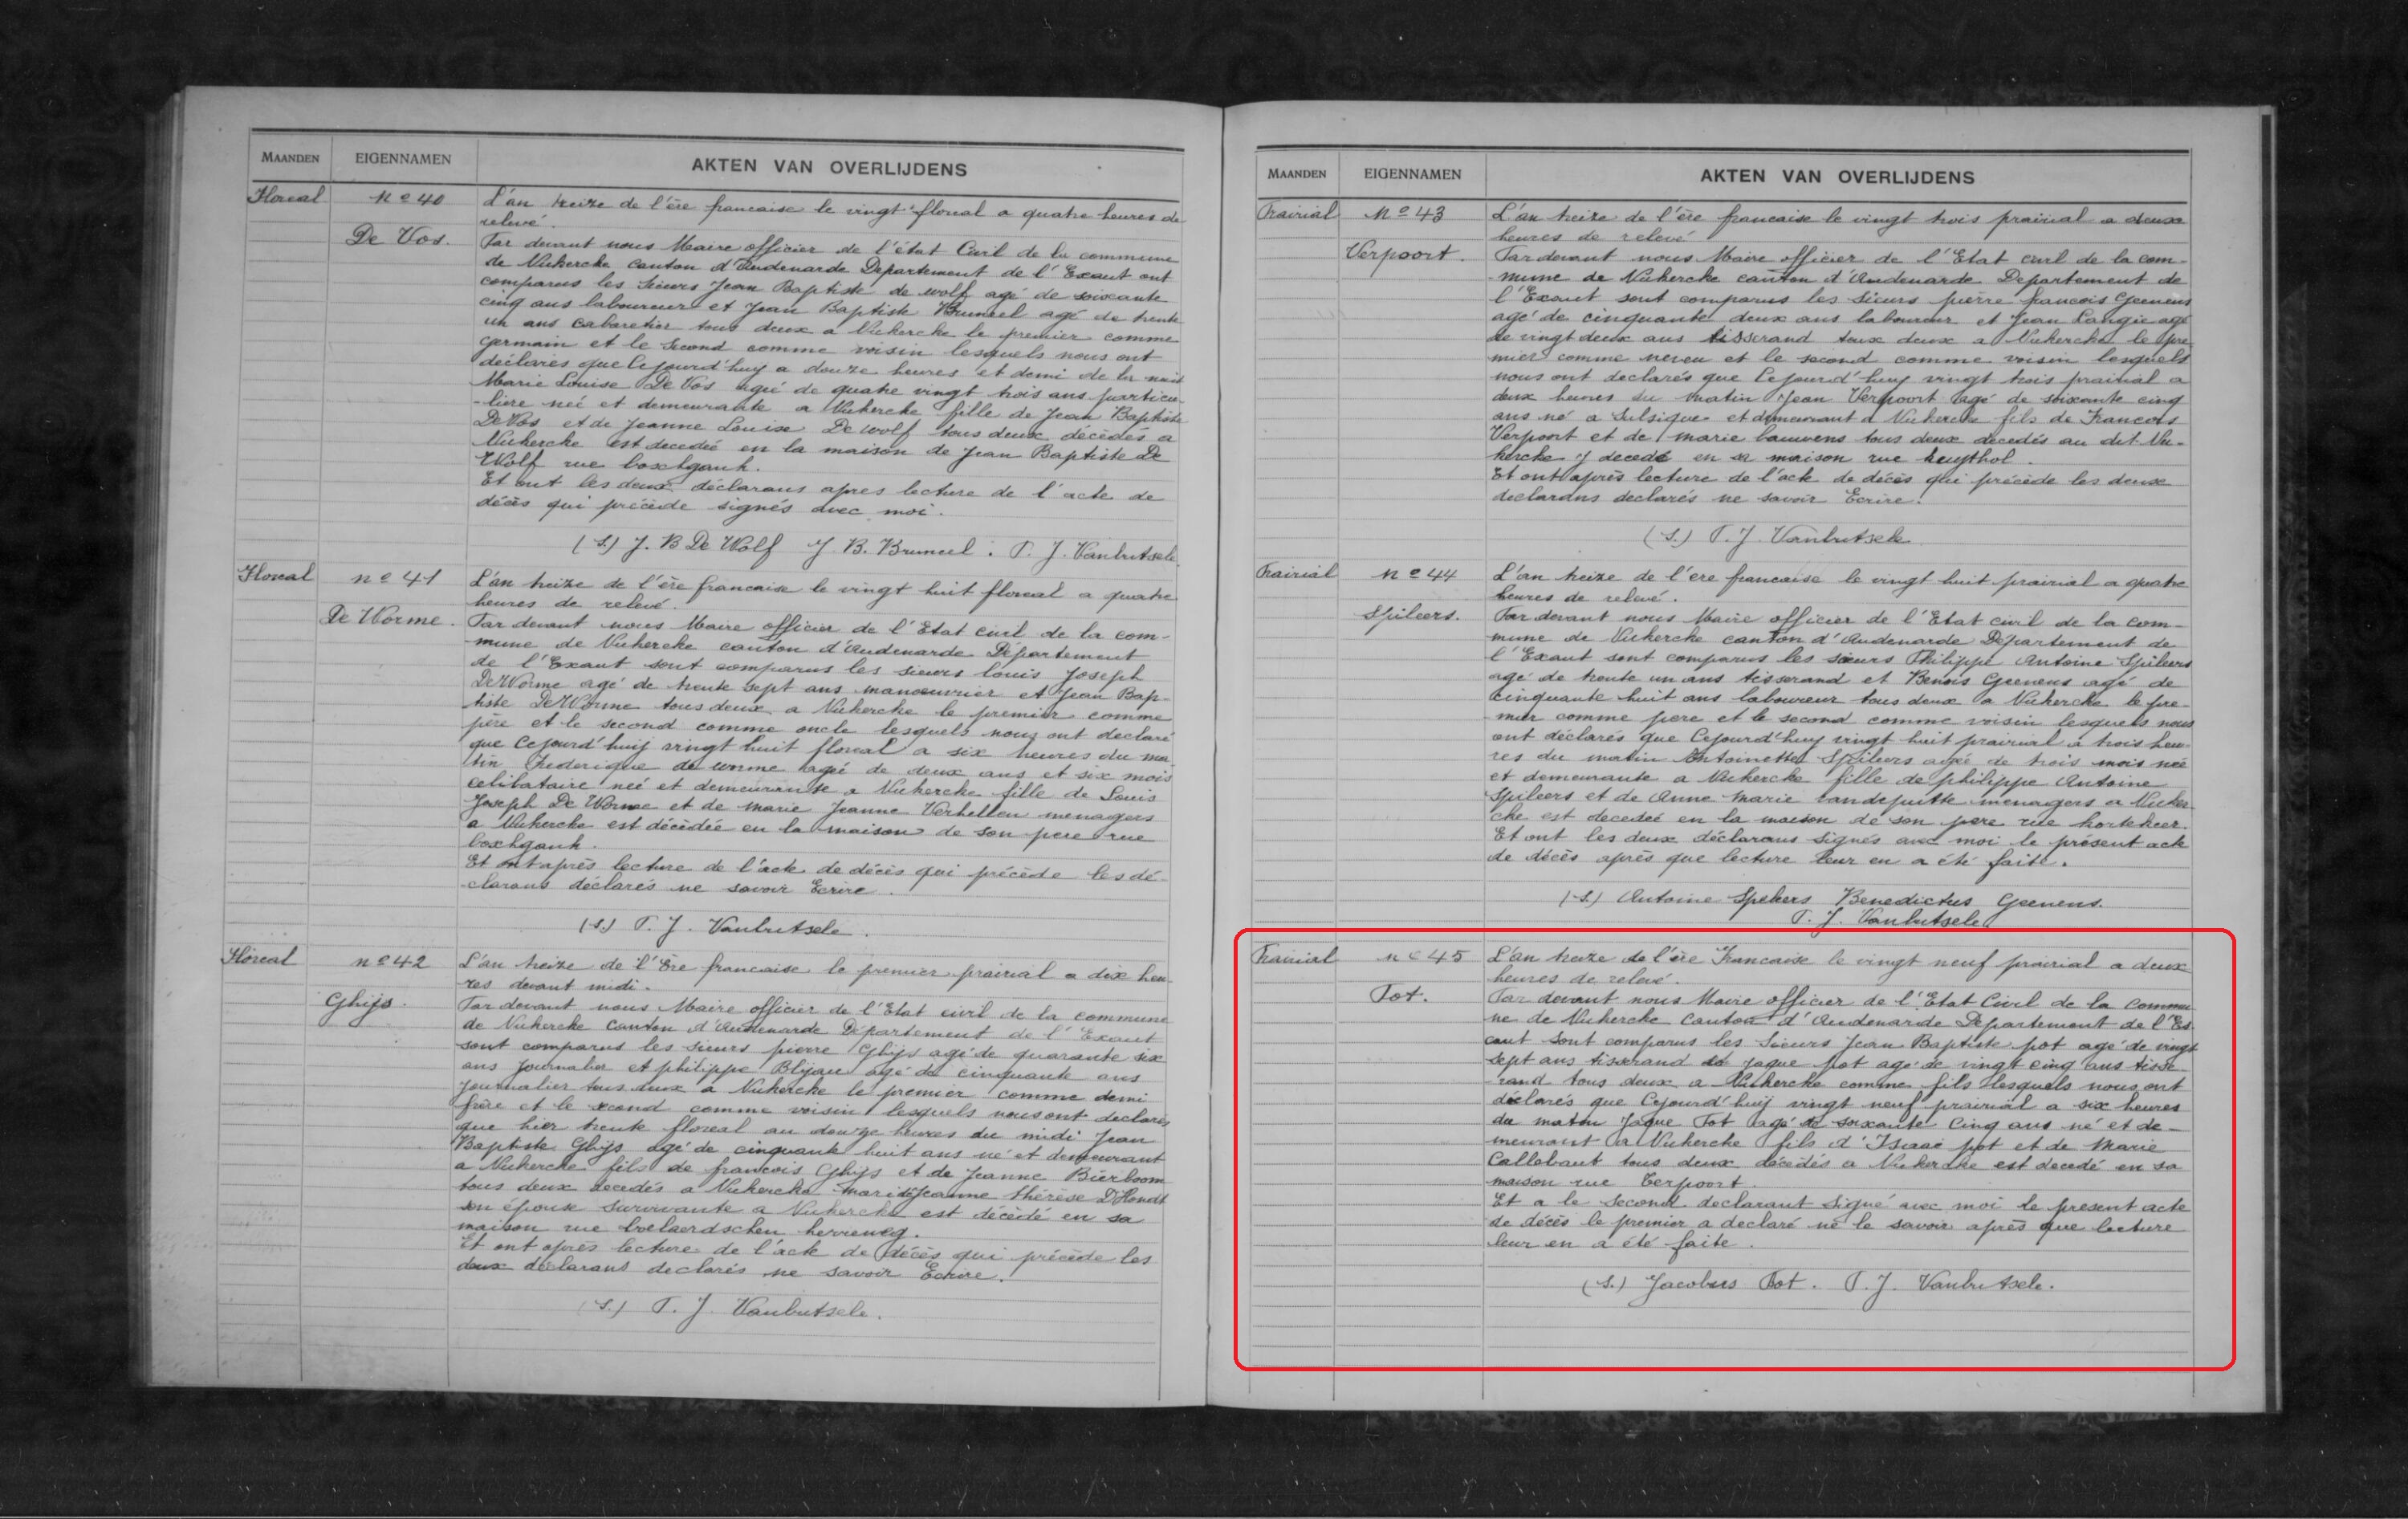 MAANDEN EIGENNAMEN AKTEN VAN OVERLIJDENS
Floreal Nº 40 L'an treize de l'ère francaise le vingt floreal a quatre heures de
relevé.
De Vos. Par devant nous Maire officier de l'état Civil de la commune
de Nukercke canton d'Audenarde Departement de l'Excaut ont
comparus les sieurs Jean Baptiste de wolf agé de soixante
cinq ans laboureur et Jean Baptiste Bruneel agé de trente
un ans cabaretier tous deux a Nukercke le premier comme
germain et le second comme voisin lesquels nous ont
déclarés que Cejourd'huy a douze heures et demi de la nuit
Marie Louise De Vos agée de quatre vingt trois ans particu-
-lière neé et demeurante a Nukercke fille de Jean Baptiste
De Vos et de Jeanne Louise De wolf tous deux décédés a
Nukercke est decedeé en la maison de Jean Baptiste De
Wolf rue
Et ont les deux déclarans apres lecture de l'acte de
décès qui précède signés avec moi.
(S.) J. B De Wolf J. B. Bruneel. P. J. Vanbutsele
Floreal nº 41 L'an treize de l'ère francaise le vingt huit floreal a quatre
heures de relevé.
De Worme. Par devant nous Maire officier de l'Etat civil de la com-
mune de Nukercke canton d'Audenarde Département
de l'Excaut sont comparus les sieurs louis Joseph
De Worme agé de trente sept ans manœuvrier et Jean Bap-
tiste De Worme tous deux a Nukercke le premier comme
père et le second comme oncle lesquels nous ont declaré
que Cejourd'huij vingt huit floreal a six heures du ma
tin Frederique de worme agée de deux ans et six mois
celibataire neé et demeurante a Nukercke fille de Louis
Joseph De Worme et de Marie Jeanne Verhellen menagers
a Nukercke est décèdée en la maison de son pere rue
Et ont après lecture de l'acte de décès qui précède les dé-
-clarans déclarés ne savoir Ecrire.
(S.) P. J. Vanbutsele.
Floreal nº 42 L'an treize de l'ère francaise le premier prairial a dix heu-
res devant midi.
Ghijs. Par devant nous Maire officier de l'Etat civil de la commune
de Nukercke canton d'Audenarde Département de l'Excaut
sont comparus les sieurs pierre Ghijs agé de quarante six
ans Journalier et philippe Blijau agé de cinquante ans
Journalier tous deux a Nukercke le premier comme demi
frère et le second comme voisin lesquels nous ont declarés
que hier trente floreal au douze heures du midi Jean
Baptiste Ghijs agé de cinquante huit ans né et demeurant
a Nukercke fils de francois Ghijs et de Jeanne Bierboom
tous deux decedés a Nukercke mari de Jeanne thérèse D'Hondt
son épouse survivante a Nukercke est décèdé en sa
maison rue
Et ont après lecture de l'acte de décès qui précède les
deux déclarans declarés ne savoir Ecrire.
(S.) P. J. Vanbutsele.
MAANDEN EIGENNAMEN AKTEN VAN OVERLIJDENS
Prairial Nº 43 L'an treize de l'ère francaise le vingt trois prairial a deux
heures de relevé
Verpoort. Par devant nous Maire officier de l'Etat civil de la com-
-mune de Nukercke canton d'Audenarde Departement de
l'Excaut sont comparus les sieurs pierre francois Geenens
agé de cinquante deux ans laboureur et Jean Langie agé
de vingt deux ans tisserand tous deux a Nukercke le pre
mier comme neveu et le second comme voisin lesquels
nous ont declarés que Cejourd'huy vingt trois prairial a
deux heures du matin Jean Verpoort agé de soixante cinq
ans né a Sulsique et demeurant a Nukercke fils de Francois
Verpoort et de marie bauwens tous deux decedés au dit Nu-
kercke y decedé en sa maison rue
Et ont après lecture de l'acte de décès qui précède les deux
declarans declarés ne savoir Ecrire.
(S.) P. J. Vanbutsele
Prairial Nº 44 L'an treize de l'ere francaise le vingt huit prairial a quatre
heures de relevé.
Spileers. Par devant nous Maire officier de l'Etat civil de la com-
mune de Nukercke canton d'Audenarde Département de
l'Excaut sont comparus les sieurs Philippe Antoine Spileers
agé de trente un ans tisserand et Benois Geenens agé de
cinquante huit ans laboureur tous deux a Nukercke le pre-
mier comme pere et le second comme voisin lesquels nous
ont déclarés que Cejourd'huy vingt huit prairial a trois heu-
res du matin Antoinette Spileers agée de trois mois neé
et demeurante a Nukercke fille de philippe Antoine
Spileers et de Anne Marie vandeputte menagers a Nuker
cke est decedeé en la maison de son pere rue
Et ont les deux déclarans signés avec moi le présent acte
de décès après que lecture leur en a été faite.
(S.) Antoine Speliers Benedictus Geenens.
P. J. Vanbutsele
Prairial nº 45 L'an treize de l'ère Francaise le vingt neuf prairial a deux
heures de relevé.
Pot. Par devant nous Maire officier de l'Etat Civil de la Commu
ne de Nukercke Canton d'Audenarde Departement de l'Es
caut sont comparus les sieurs Jean Baptiste pot agé de vingt
sept ans tisserand et Jaque pot agé de vingt cinq ans tisse-
-rand tous deux a Nukercke comme fils lesquels nous ont
déclarés que Cejourd'huij vingt neuf prairial a six heures
du matin Jaque Pot agé de soixante Cinq ans né et de-
meurant a Nukercke fils d'Isaac pot et de Marie
Callebaut tous deux décédés a Nukercke est decedé en sa
maison rue Terpoort.
Et a le second declarant signé avec moi le present acte
de décès le premier a declaré ne le savoir après que lecture
leur en a été faite.
(S.) Jacobus Pot. P. J. Vanbutsele.